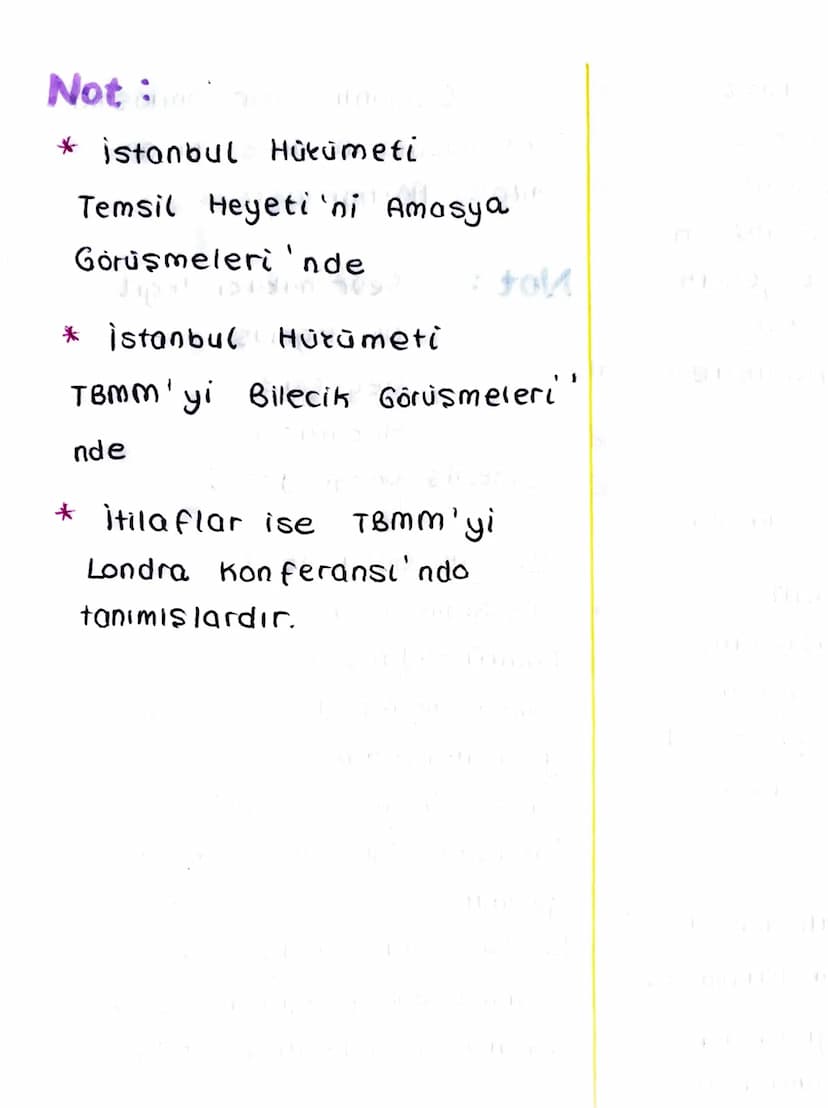 Not :
* İstanbul Hükümeti
Temsil Heyeti'ni Amasya
Görüşmeleri'nde
* İstanbul Hükümeti
TBMM'yi Bilecik Görüşmeleri''
nde
* İtilaflar ise TBMM'yi
Londra Konferansı'nda
tanımışlardır.